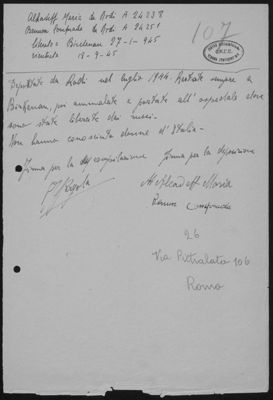 Alhadeff Maria da Rodi A 24238
Benun Comprada da Rodi A 24251
liberate a Birkenau 27-1-945
rientrate 18-9-45
107
Deportate da Rodi nel luglio 1944. Restate sempre a
Birkenau, poi ammalate e portate all'ospedale dove
sono state liberate dai russi.
Non hanno conosciuto donne d'Italia.
Firma per la compilazione Firma per la deposizione
M Alcadeff Maria
26
Via Pietralata 106
Roma